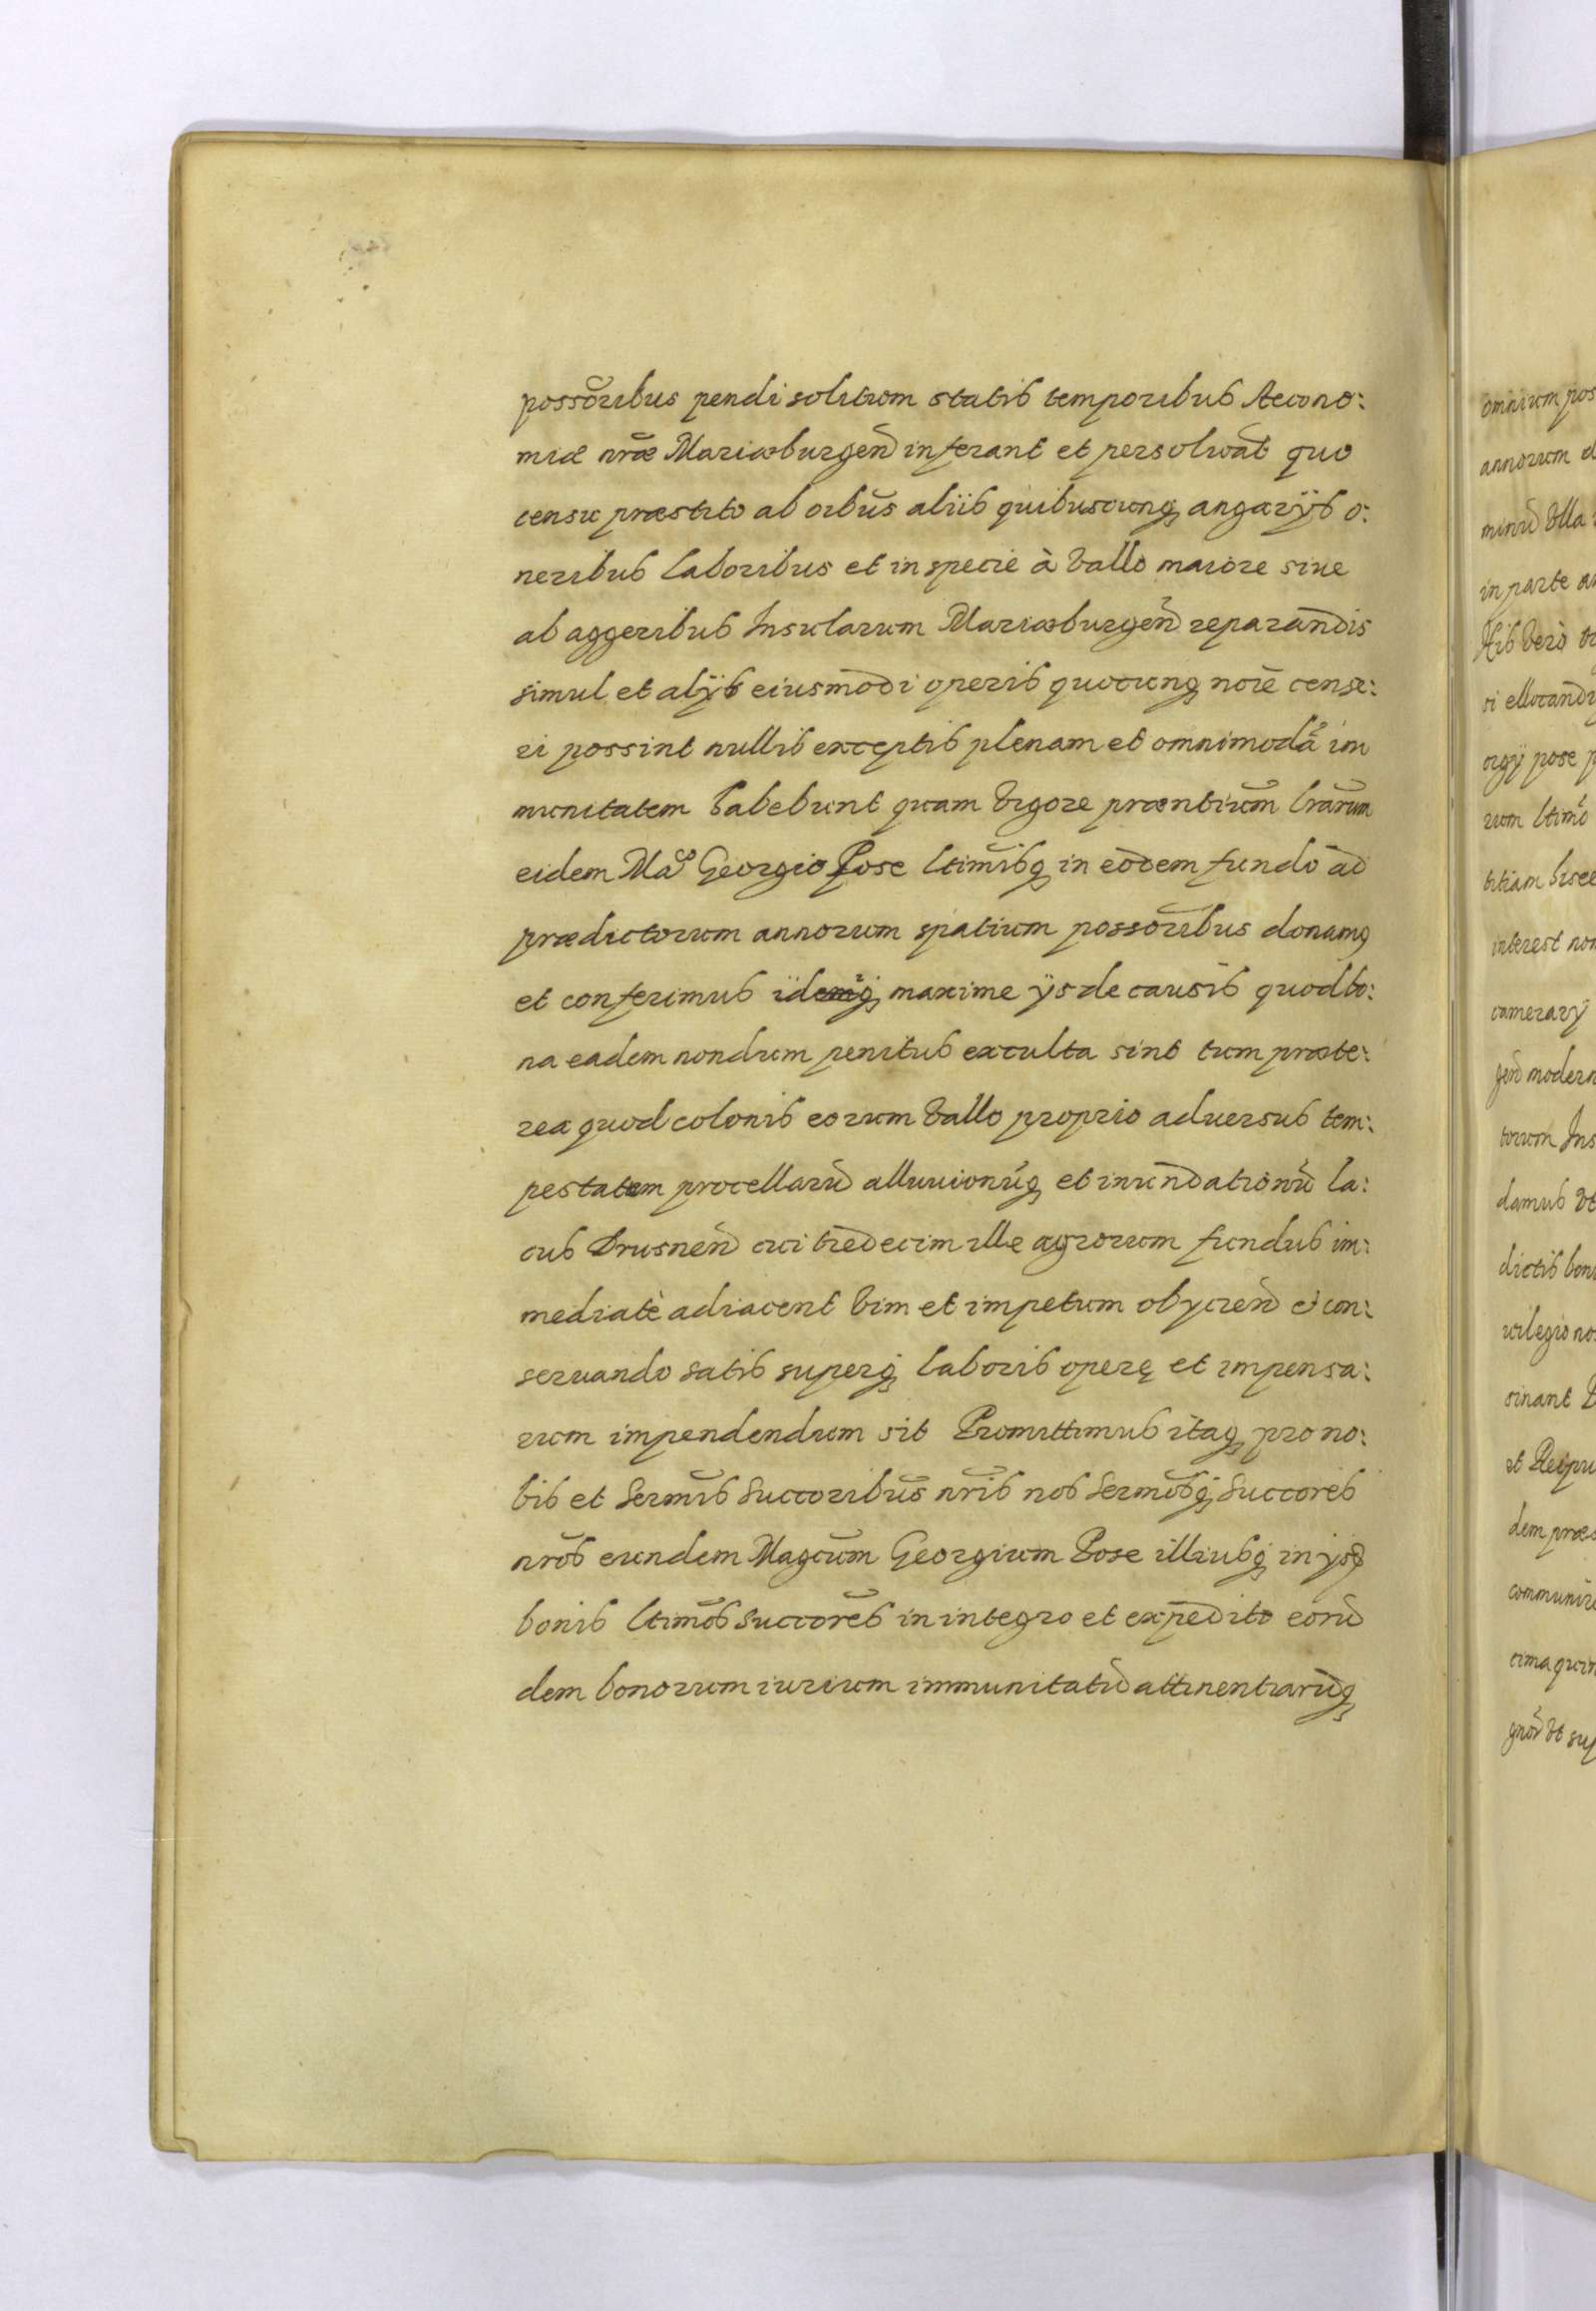 possõribus pendi solitum statis temporibus Aecono:
miæ nr̃æ Mariæburgeñ inferant et persoluãt quo
censu præstito ab oĩbus aliis quibuscunq; angarÿs o:
neribus laboribus et in specie à vallo maiore siue
ab aggeribus Insularum Mariæburgeñ reparandis
simul et alÿs eiusmodi operis quocunq; noĩe cense:
ri possint nullis exceptis plenam et omnimodã im
munitatem habebunt quam vigore præntium lr̃arum
eidem Mão Georgio Pose ltimĩsq; in eodem fundo ad
prædictorum annorum spatium possõribus donamq
et conferimus idemq; maxime ÿs de causis quod bo:
na eadem nondum penitus exculta sint tum præte:
rea quod colonis eorum vallo proprio aduersus tem:
pestatem procellarũ alluuionũq; et inundationũ la:
cus Drusneñ cui tredecim ille agrorum fundus im:
mediatè adiacent vim et impetum obycieñ ei con:
seruando satis superq; laboris operę et impensa:
rum impendendum sit Promittimus itaq; pro no:
bis et Serm̃is Succoribũs nr̃is nos Serm̃osq; Succores
nr̃os eundem Magcũm Georgium Pose illiusq; in ysd
bonis ltimõs Succorẽs in integro et expedito eorũ
dem bonorum iurium immunitatũ attinentiarũq;
omnium pos
annorum d
minũ vlla
in parte a
His verò
si ellocand
orgÿ pose p
rum ltimo
titiam
interest non
camerarÿ
geñ modern
torum Ins
damus vt
dictis bon
uilegio no
sinant
et Reipu
dem præs
communir
cima quin
gnor̃ vt sup